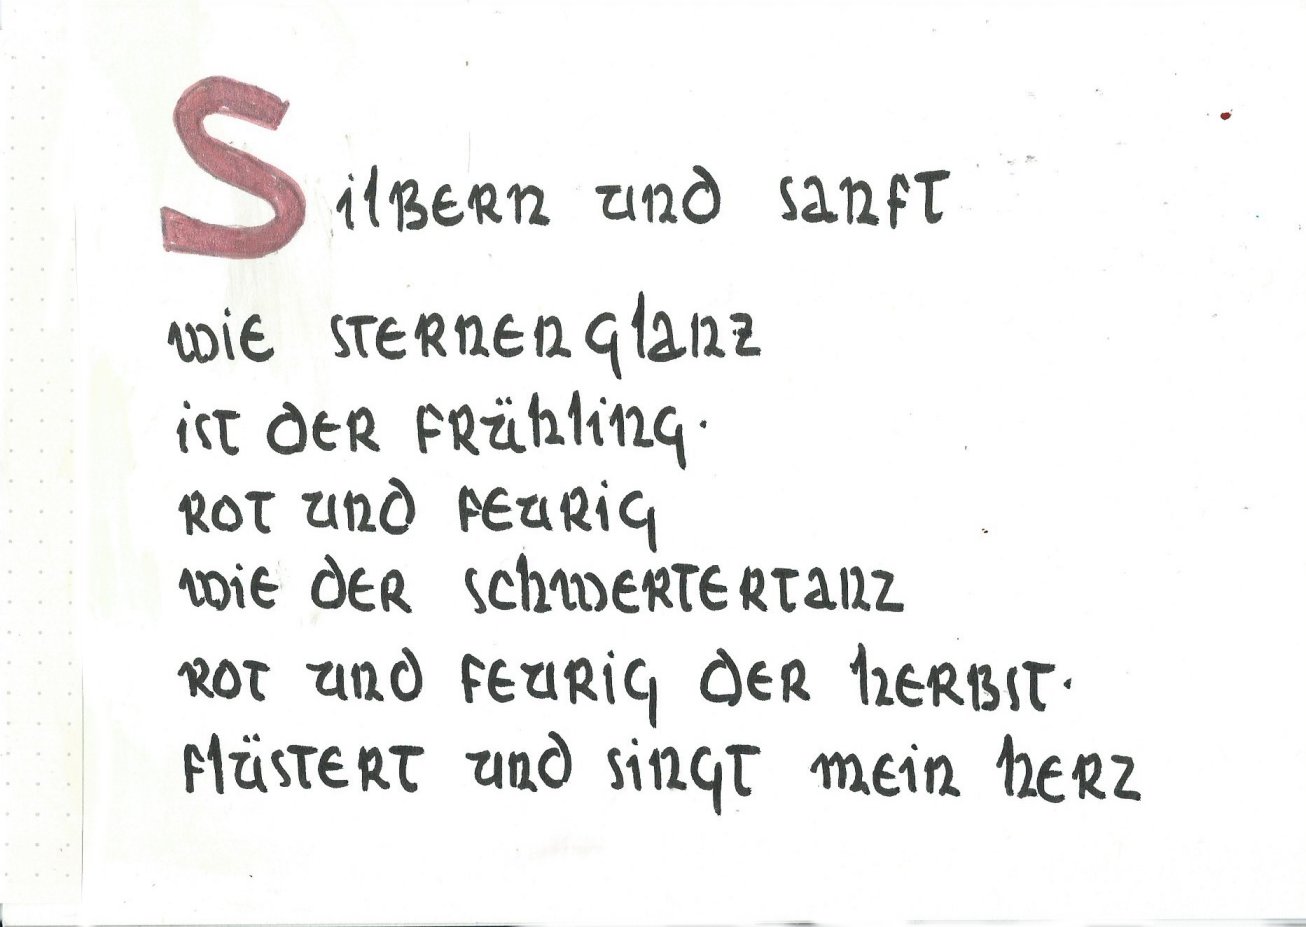 Silbern und sanft
wie sternenglanz
ist der frühling.
rot und feurig
wie der schwertertanz
rot und feurig der herbst.
flüstert und singt mein herz